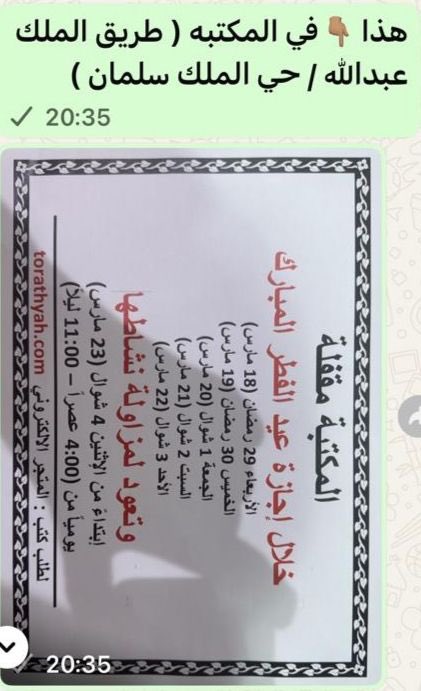 هذا 👇🏽 في المكتبه ( طريق الملك
عبدالله / حي الملك سلمان )
20:35
المكتبة مقفلة
خلال إجازة عيد الفطر المبارك
الأربعاء 29 رمضان (18 مارس)
الخميس 30 رمضان (19 مارس)
الجمعة 1 شوال (20 مارس)
السبت 2 شوال (21 مارس)
الأحد 3 شوال (22 مارس)
وتعود لمزاولة نشاطها
إبتداءً من الإثنين 4 شوال (23 مارس)
يومياً من (4:00 عصراً – 11:00 ليلاً)
لطلب كتب : المتجر الالكتروني torathyah.com
20:35